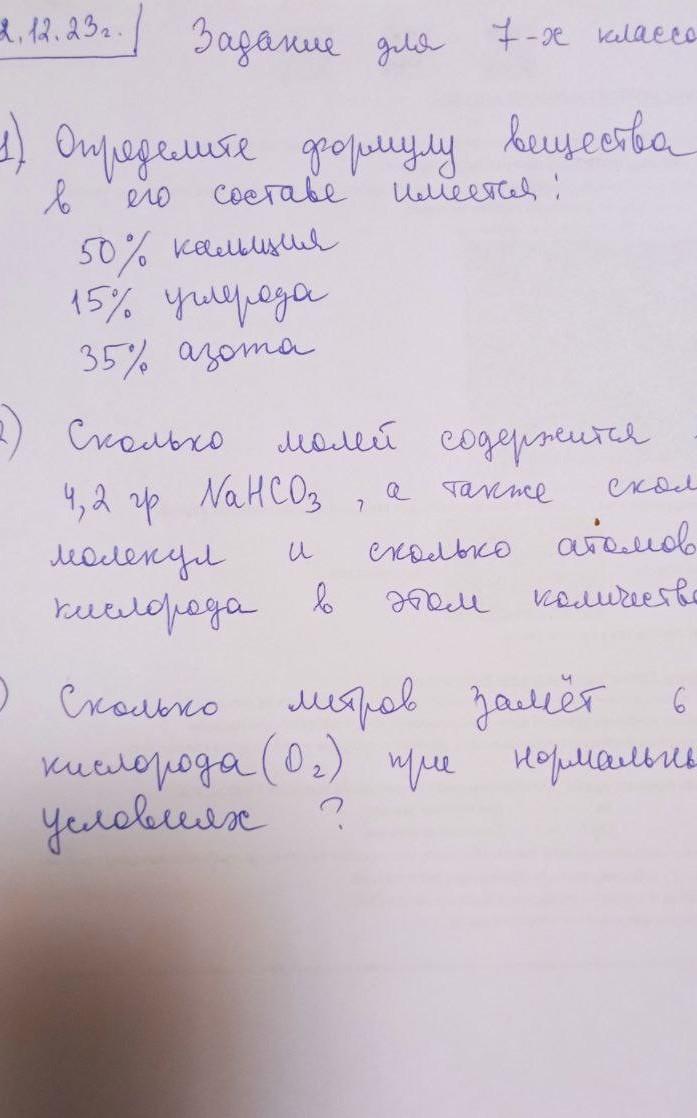 2.12.23г. Задание для 7-х классо
1) Определите формулу вещества
в его составе имеется:
50% кальция
15% углерода
35% азота
2) Сколько молей содержится
4,2 гр NaHCO₃, а также скол
молекул и сколько атомов
кислорода в этом количестве
) Сколько литров займёт 6
кислорода (O₂) при нормальны
условиях ?